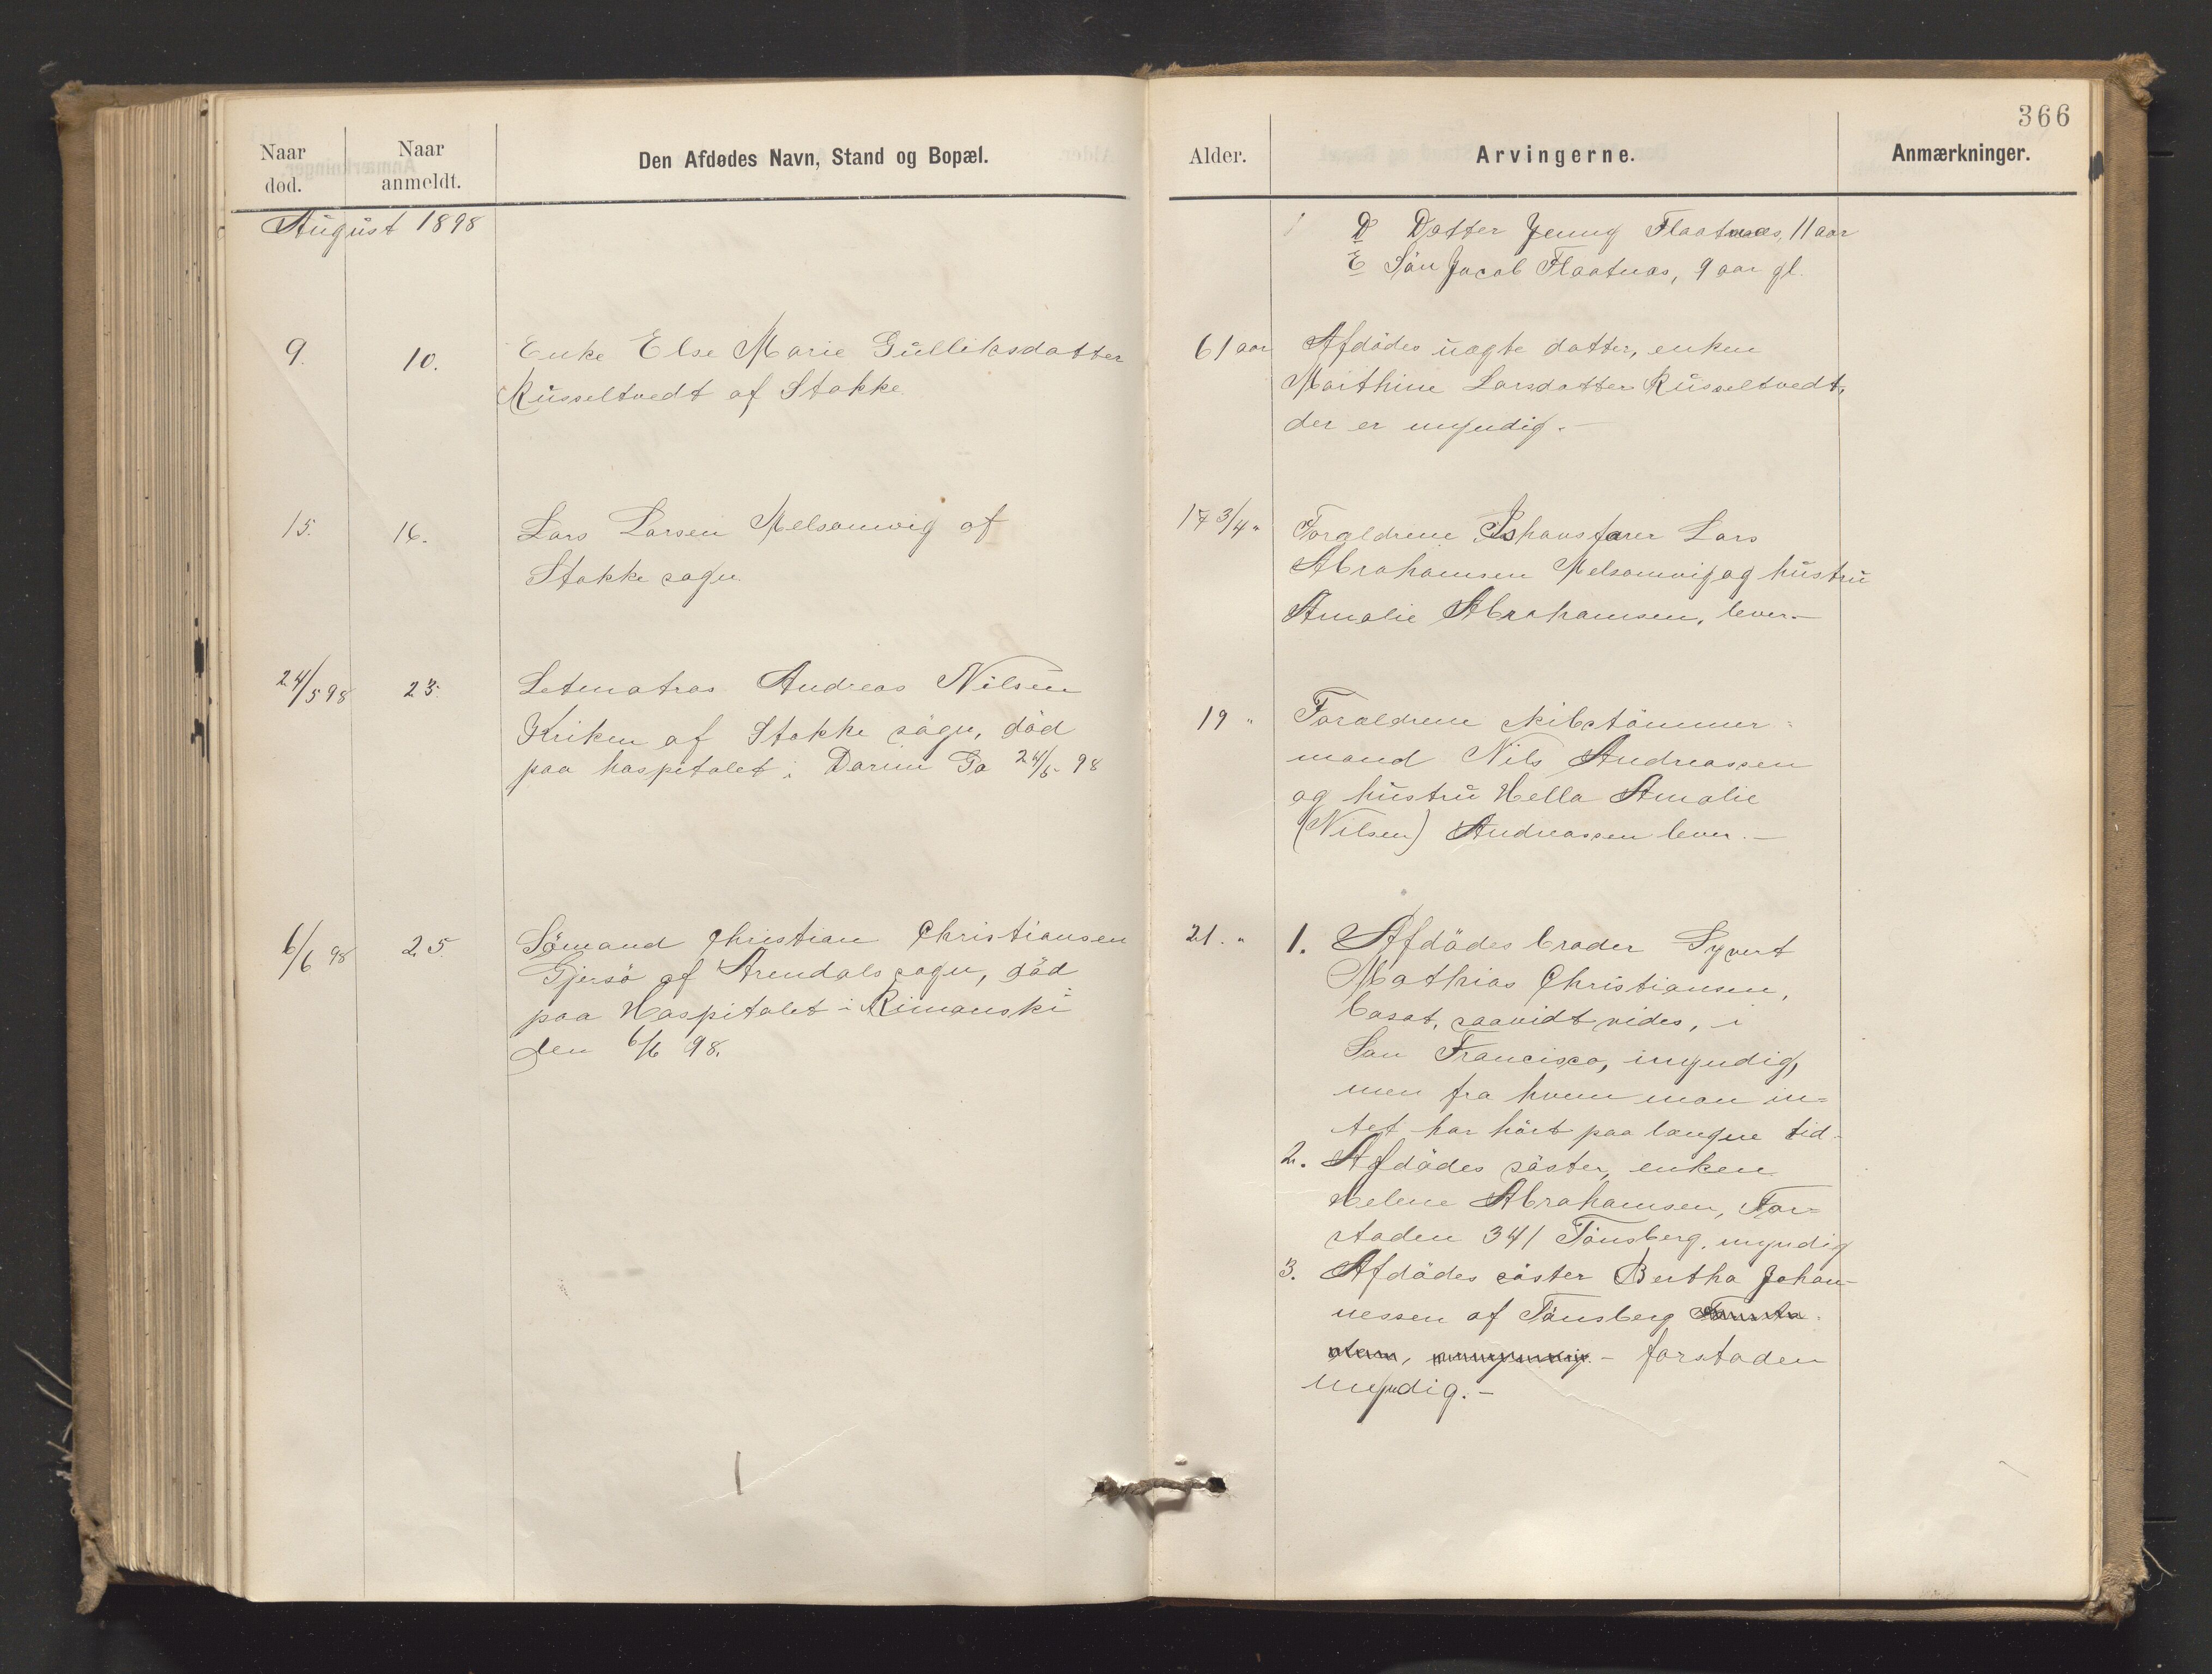 366
Naar død.
Naar anmeldt.
Den Afdødes Navn, Stand og Bopæl.
Alder.
Arvingerne.
Anmærkninger.
August 1898
D Datter Jenny Flaatnæs, 11 aar
E Sön Jacob Flaatnæs, 9 aar gl.
9.
10.
Enke Else Marie Gulliksdatter
Russeltvedt af Stokke
61 aar
Afdödes uægte datter, enken
Maithine Larsdatter Russeltvedt,
der er myndig.-
15.
16.
Lars Larsen Melsomvig af
Stokke sogn
17 3/4 "
Forældrene Ishavsfarer Lars
Abrahamsen Melsomvig og hustru
Amalie Abrahamsen, lever.-
24/5 98
23.
Letmatros Andreas Nilsen
Kriken af Stokke sogn, död
paa hospitalet i Darien Ga 24/5 98
19 "
Forældrene skibstömmer=
mand Nils Andreassen
og hustru Hella Amalie
(Nilsen) Andreassen lever.-
6/6 98
25.
Sömand Christian Christiansen
Gjersö af Arendals sogn, död
paa Hospitalet i Rimouski
den 6/6 98.
21. "
1. Afdödes broder Syvert
Mathias Christiansen,
bosat, saavidt vides, i
San Francisco, myndig,
men fra hvem man in=
tet har hört paa længre tid-
2. Afdödes söster, enken
Helene Abrahamsen, For=
staden 341 Tönsberg, myndig
3. Afdödes söster Bertha Johan-
nessen af Tönsberg
- forstaden
myndig.-